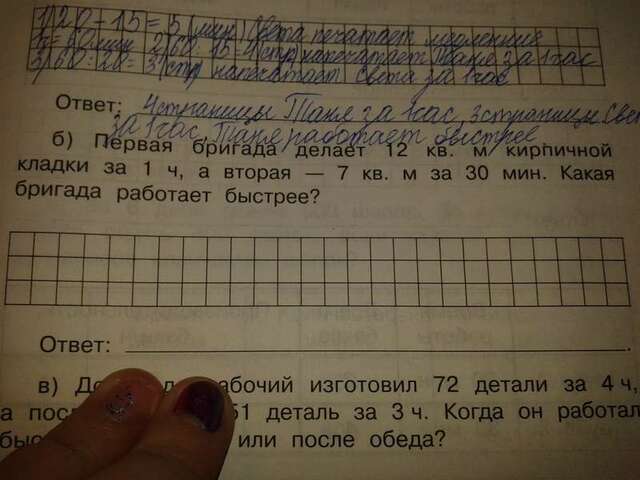 1) 20 - 15 = 5 (мин) Света печатает медленнее
1ч = 60 мин 2) 60 : 15 = 4 (стр) напечатает Таня за 1 час
3) 60 : 20 = 3 (стр напечатает Света за 1 час
Ответ: 4 страницы Таня за 1 час, 3 страницы Све
за 1 час, Таня работает быстрее
б) Первая бригада делает 12 кв. м кирпичной
кладки за 1 ч, а вторая — 7 кв. м за 30 мин. Какая
бригада работает быстрее?
Ответ:
в) абочий изготовил 72 детали за 4 ч,
а пос 51 деталь за 3 ч. Когда он работал
быс или после обеда?